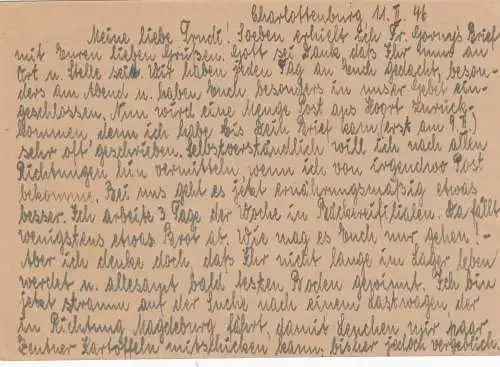 Charlottenburg 11. II. 46
Meine liebe Trudi! Soeben erhielt ich Fr. Gornys Brief
mit Euren lieben Grüßen. Gott sei Dank, daß Ihr nun an
Ort u. Stelle seid. Wir haben jeden Tag an Euch gedacht, beson-
ders am Abend u. haben Euch besonders in unser Gebet ein-
geschlossen. Nun wird eine Menge Post aus zurück-
kommen, denn ich habe bis Dein Brief kam (erst am 9. II.)
sehr oft geschrieben. Selbstverständlich will ich nach allen
Richtungen hin vermitteln wenn ich von irgendwo Post
bekomme. Bei uns geht es jetzt ernährungsmäßig etwas
besser. Ich arbeite 3 Tage der Woche in Bäckereifilialen. Da fällt
wenigstens etwas Brot ab. Wie mag es Euch nur gehen!
Aber ich denke doch, daß Ihr nicht lange im Lager leben
werdet u. allesamt bald festen Boden gewinnt. Ich bin
jetzt stramm auf der Suche nach einem Lastwagen der
in Richtung Magdeburg fährt, damit Lenchen mir paar
Zentner Kartoffeln mitschicken kann, bisher jedoch vergeblich.